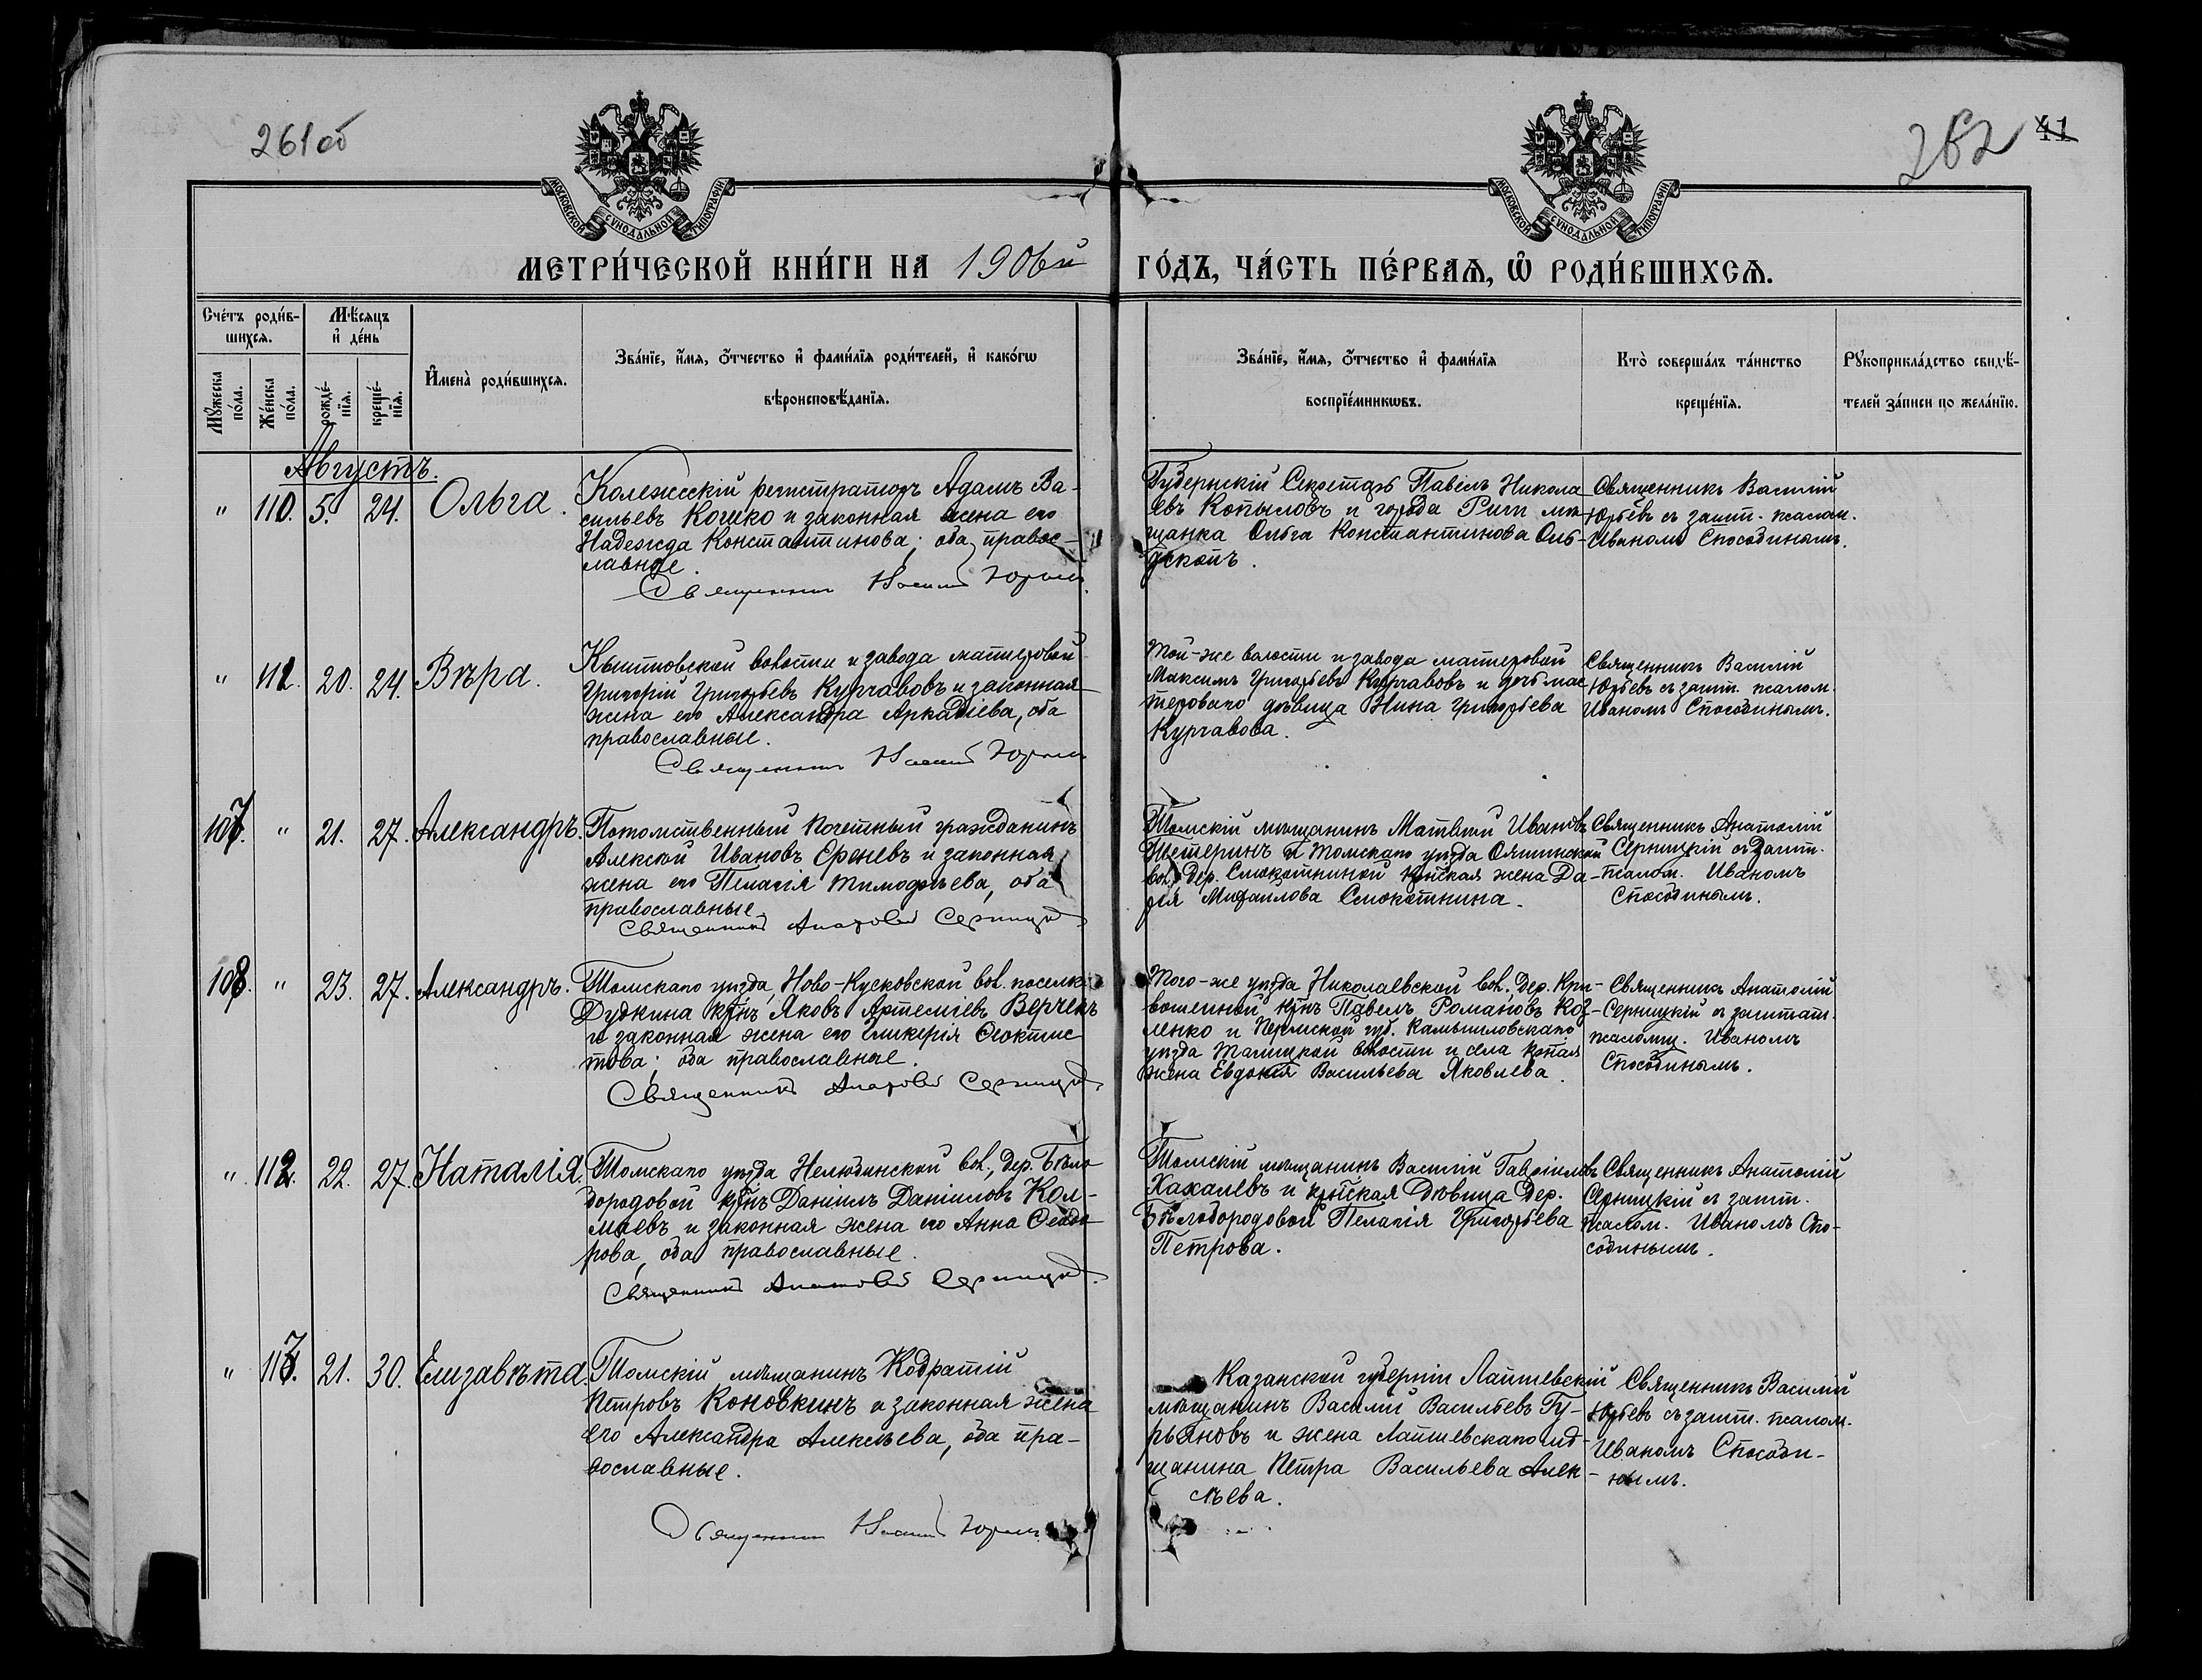 261об
262
41
МОСКОВСКОЙ СУНОДАЛЬНОЙ ТИПОГРАФІИ
МОСКОВСКОЙ СУНОДАЛЬНОЙ ТИПОГРАФІИ
МЕТРИ́ЧЕСКОЙ КНИ́ГИ НА 1906й ГО́ДЪ, ЧА́СТЬ ПЕ́РВАѦ, Ѡ҆ РОДИ́ВШИХСѦ.
Сче́тъ роди́в-
шихсѧ.
Мꙋ́жеска по́ла.
Же́нска по́ла.
Мѣ́сѧцъ
и҆ де́нь
рожде́-
нїѧ.
креще́-
нїѧ.
И҆мена̀ роди́вшихсѧ.
Зва́нїе, и҆́мѧ, ѻ҆́тчество и҆ фами́лїѧ роди́телей, и҆ како́гѡ
вѣроисповѣ́данїѧ.
Зва́нїе, и҆́мѧ, ѻ҆́тчество и҆ фами́лїѧ
воспрїе́мникѡвъ.
Кто̀ соверша́лъ та́инство
креще́нїѧ.
Рꙋкоприкла́дство свидѣ́-
телей за́писи по жела́нїю.
Августъ.
" 110. 5. 24. Ольга.
Колежскій регистраторъ Адамъ Ва-
сильевъ Кошко и законная жена его
Надежда Константинова; оба правос-
лавные.
Священникъ Василій Юрьевъ
Губернскій Секретарь Павелъ Никола
евъ Копыловъ и города Риги мѣ-
щанка Ольга Константинова
Священникъ Василій
Юрьевъ съ зашт. псалом.
Иваномъ Способинымъ.
" 111. 20. 24. Вѣра.
Кыштовской волости и завода мастеровой
Григорій Григорьевъ Курчавовъ и законная
жена его Александра Аркадіева, оба
православные.
Священникъ Василій Юрьевъ
Той-же волости и завода мастеровой
Максимъ Григорьевъ Курчавовъ и дочь мас
тероваго дѣвица Нина Григорьева
Курчавова.
Священникъ Василій
Юрьевъ съ зашт. псалом.
Иваномъ Способинымъ.
107. " 21. 27. Александръ.
Потомственный Почетный гражданинъ
Алексѣй Ивановъ Ереневъ и законная
жена его Пелагія Тимофѣева, оба
православные.
Священникъ Анатолій Серницкій
Томскій мѣщанинъ Матвѣй Ивановъ
Тетеринъ и Томскаго уѣзда Ояшинской
вол., дер. Смокотниной кр-нская жена Да-
рія Михаилова Смокотнина.
Священникъ Анатолій
Серницкій съ Зашт.
псалом. Иваномъ
Способинымъ.
108. " 23. 27. Александръ.
Томскаго уѣзда, Ново-Кусковской вол. поселка
Дудкина кр-нъ Яковъ Артемиевъ Верченъ
и законная жена его Гликерія Феоктис
това; оба православные.
Священникъ Анатолій Серницкій
Того-же уѣзда Николаевской вол. дер. Кри-
вошеиной, кр-нъ Павелъ Романовъ Коз-
ленко и Пермской губ. Камышловскаго
уѣзда Талицкой волости и села
жена Евдокія Васильева Яковлева.
Священникъ Анатолій
Серницкій съ заштат.
псаломщ. Иваномъ
Способинымъ.
" 112. 22. 27. Наталія.
Томскаго уѣзда Нелюбинской вол., дер. Бѣло
бородовой кр-нъ Даніилъ Даніиловъ Кол-
маевъ и законная жена его Анна Феодо
рова, оба православные.
Священникъ Анатолій Серницкій
Томскій мѣщанинъ Василій Гавріиловъ
Хахалевъ и кр-нская дѣвица дер.
Бѣлобородовой Пелагія Григорьева
Петрова.
Священникъ Анатолій
Серницкій съ зашт.
псалом. Иваномъ Спо-
собинымъ.
" 113. 21. 30. Елизавѣта.
Томскій мѣщанинъ Кодратій
Петровъ Коновкинъ и законная жена
его Александра Алексѣева, оба пра-
вославные.
Священникъ Василій Юрьевъ
Казанской губерніи Лаишевскій
мѣщанинъ Василій Васильевъ Гу-
рьяновъ и жена Лаишевскаго мѣ-
щанина Петра Васильева Алек-
сѣева.
Священникъ Василій
Юрьевъ съ зашт. псалом.
Иваномъ Способи-
нымъ.